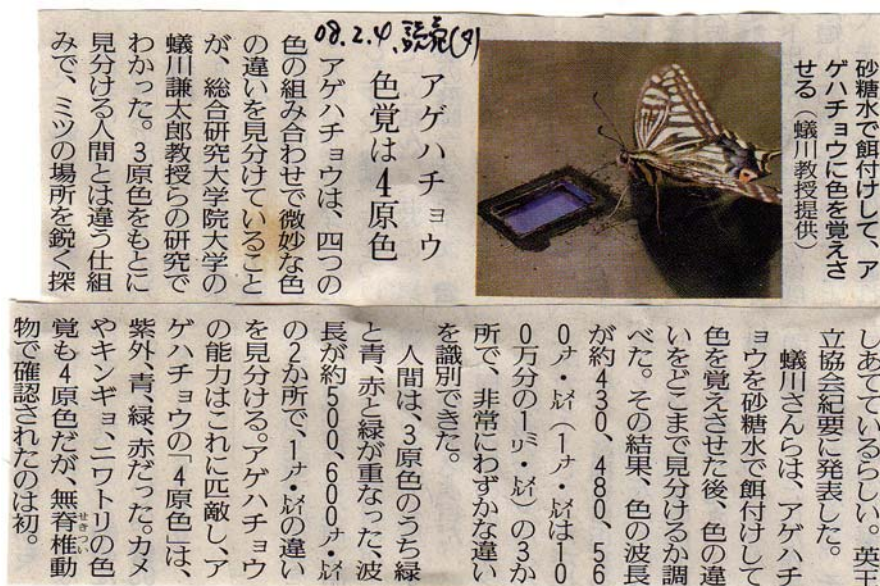 砂糖水で餌付けして、ア
ゲハチョウに色を覚えさ
せる（蟻川教授提供）
08.2.4.読売(夕)
アゲハチョウ
色覚は4原色
アゲハチョウは、四つの
色の組み合わせで微妙な色
の違いを見分けていること
が、総合研究大学院大学の
蟻川謙太郎教授らの研究で
わかった。3原色をもとに
見分ける人間とは違う仕組
みで、ミツの場所を鋭く探
しあてているらしい。英王
立協会紀要に発表した。
蟻川さんらは、アゲハチ
ョウを砂糖水で餌付けして
色を覚えさせた後、色の違
いをどこまで見分けるか調
べた。その結果、色の波長
が約430、480、56
0ナノ・メートル（1ナノ・メートルは10
0万分の1ミリ・メートル）の3か
所で、非常にわずかな違い
を識別できた。
人間は、3原色のうち緑
と青、赤と緑が重なった、波
長が約500、600ナノ・メートル
の2か所で、1ナノ・メートルの違い
を見分ける。アゲハチョウ
の能力はこれに匹敵し、ア
ゲハチョウの「4原色」は、
紫外、青、緑、赤だった。カメ
やキンギョ、ニワトリの色
覚も4原色だが、無脊椎動
せきつい
物で確認されたのは初。